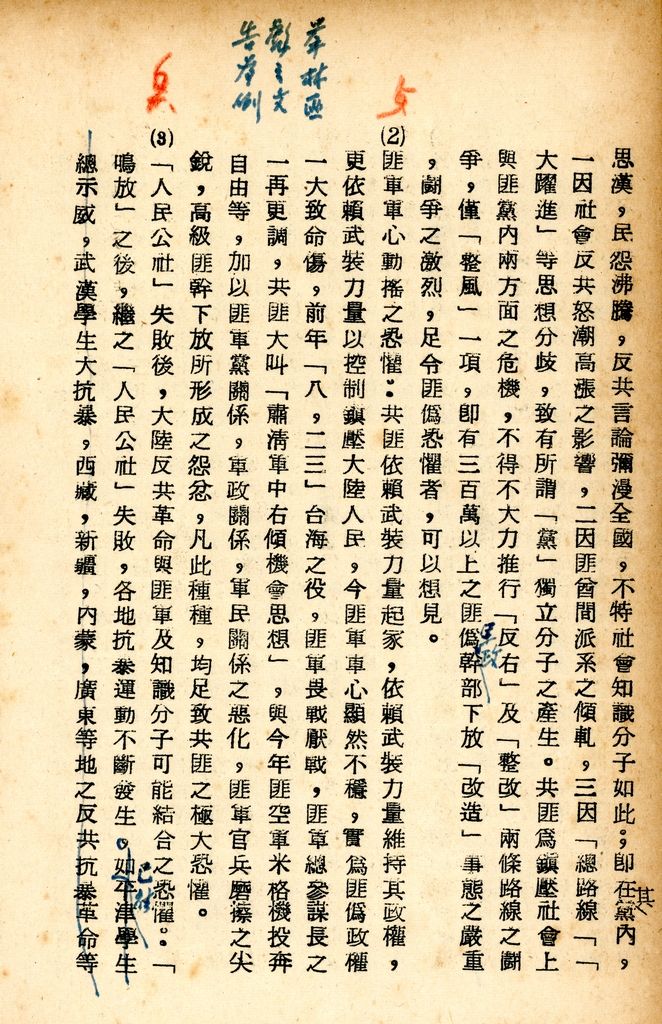 思漢，民怨沸騰，反共言論彌漫全國，不特社會知識分子如此。卽在黨內，
其
一因社會反共怒潮高漲之影響，二因匪酋間派系之傾軋，三因「總路線」「
大躍進」等思想分歧，致有所謂「黨」獨立分子之產生。共匪爲鎭壓社會上
與匪黨內兩方面之危機，不得不大力推行「反右」及「整改」兩條路線之鬪
爭，僅「整風」一項，卽有三百萬以上之匪僞幹部下放「改造」事態之嚴重
，鬪爭之激烈，足令匪僞恐懼者，可以想見。
(2)匪軍軍心動搖之恐懼：共匪依賴武裝力量起家，依賴武裝力量維持其政權，
更依賴武裝力量以控制鎭壓大陸人民，今匪軍軍心顯然不穩，實爲匪僞政權
一大致命傷，前年「八，二三」台海之役，匪軍畏戰厭戰，匪軍總參謀長之
一再更調，共匪大叫「肅清軍中右傾機會思想」，與今年匪空軍米格機投奔
自由等，加以匪軍黨關係，軍政關係，軍民關係之惡化，匪軍官兵磨擦之尖
銳，高級匪幹下放所形成之怨忿，凡此種種，均足致共匪之極大恐懼。
(3)「人民公社」失敗後，大陸反共革命與匪軍及知識分子可能結合之恐懼。：「
鳴放」之後，繼之「人民公社」失敗，各地抗暴運動不斷發生。如平津學生
總示威，武漢學生大抗暴，西藏，新疆，內蒙，廣東等地之反共抗暴革命等